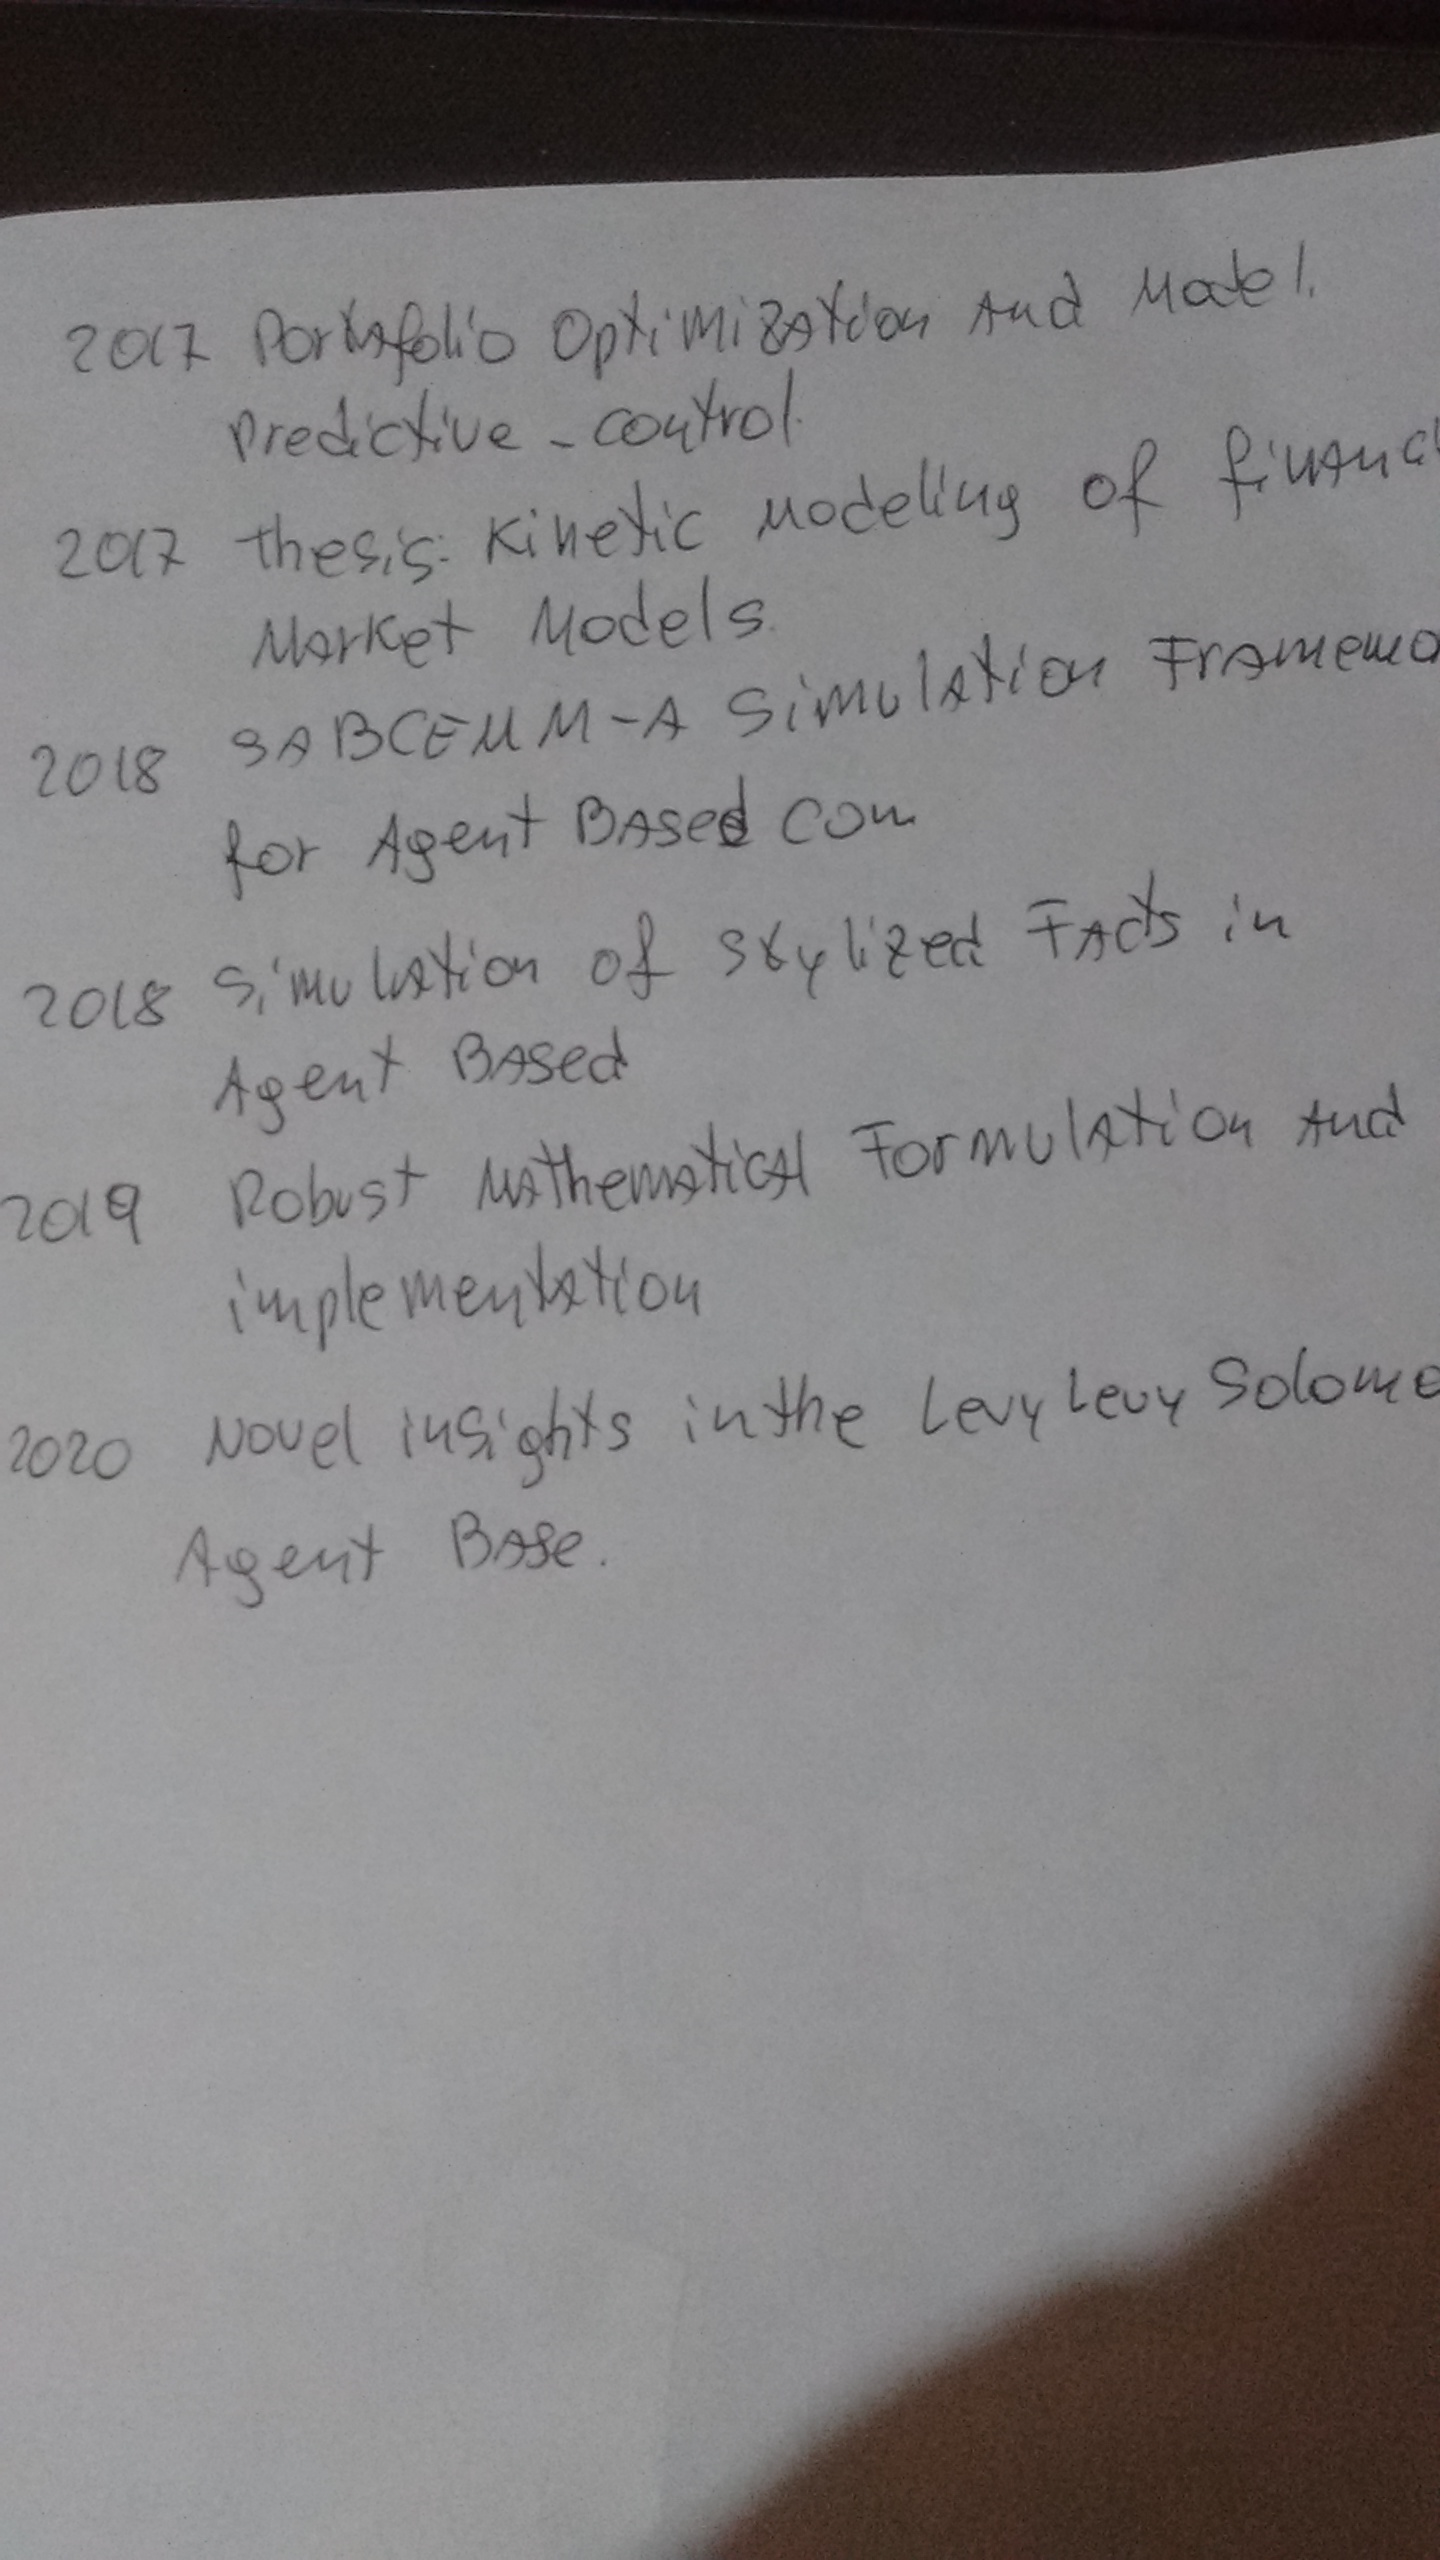 2017 Portafolio Optimization And Model.
Predictive - control.
2017 thesis: Kinetic Modeling of financi
Market Models.
2018 SABCEMM-A Simulation Framewo
for Agent Based Com
2018 Simulation of Stylized Facts in
Agent Based
2019 Robust Mathematical Formulation And
implementation
2020 Novel insights in the Levy Levy Solomo
Agent Base.